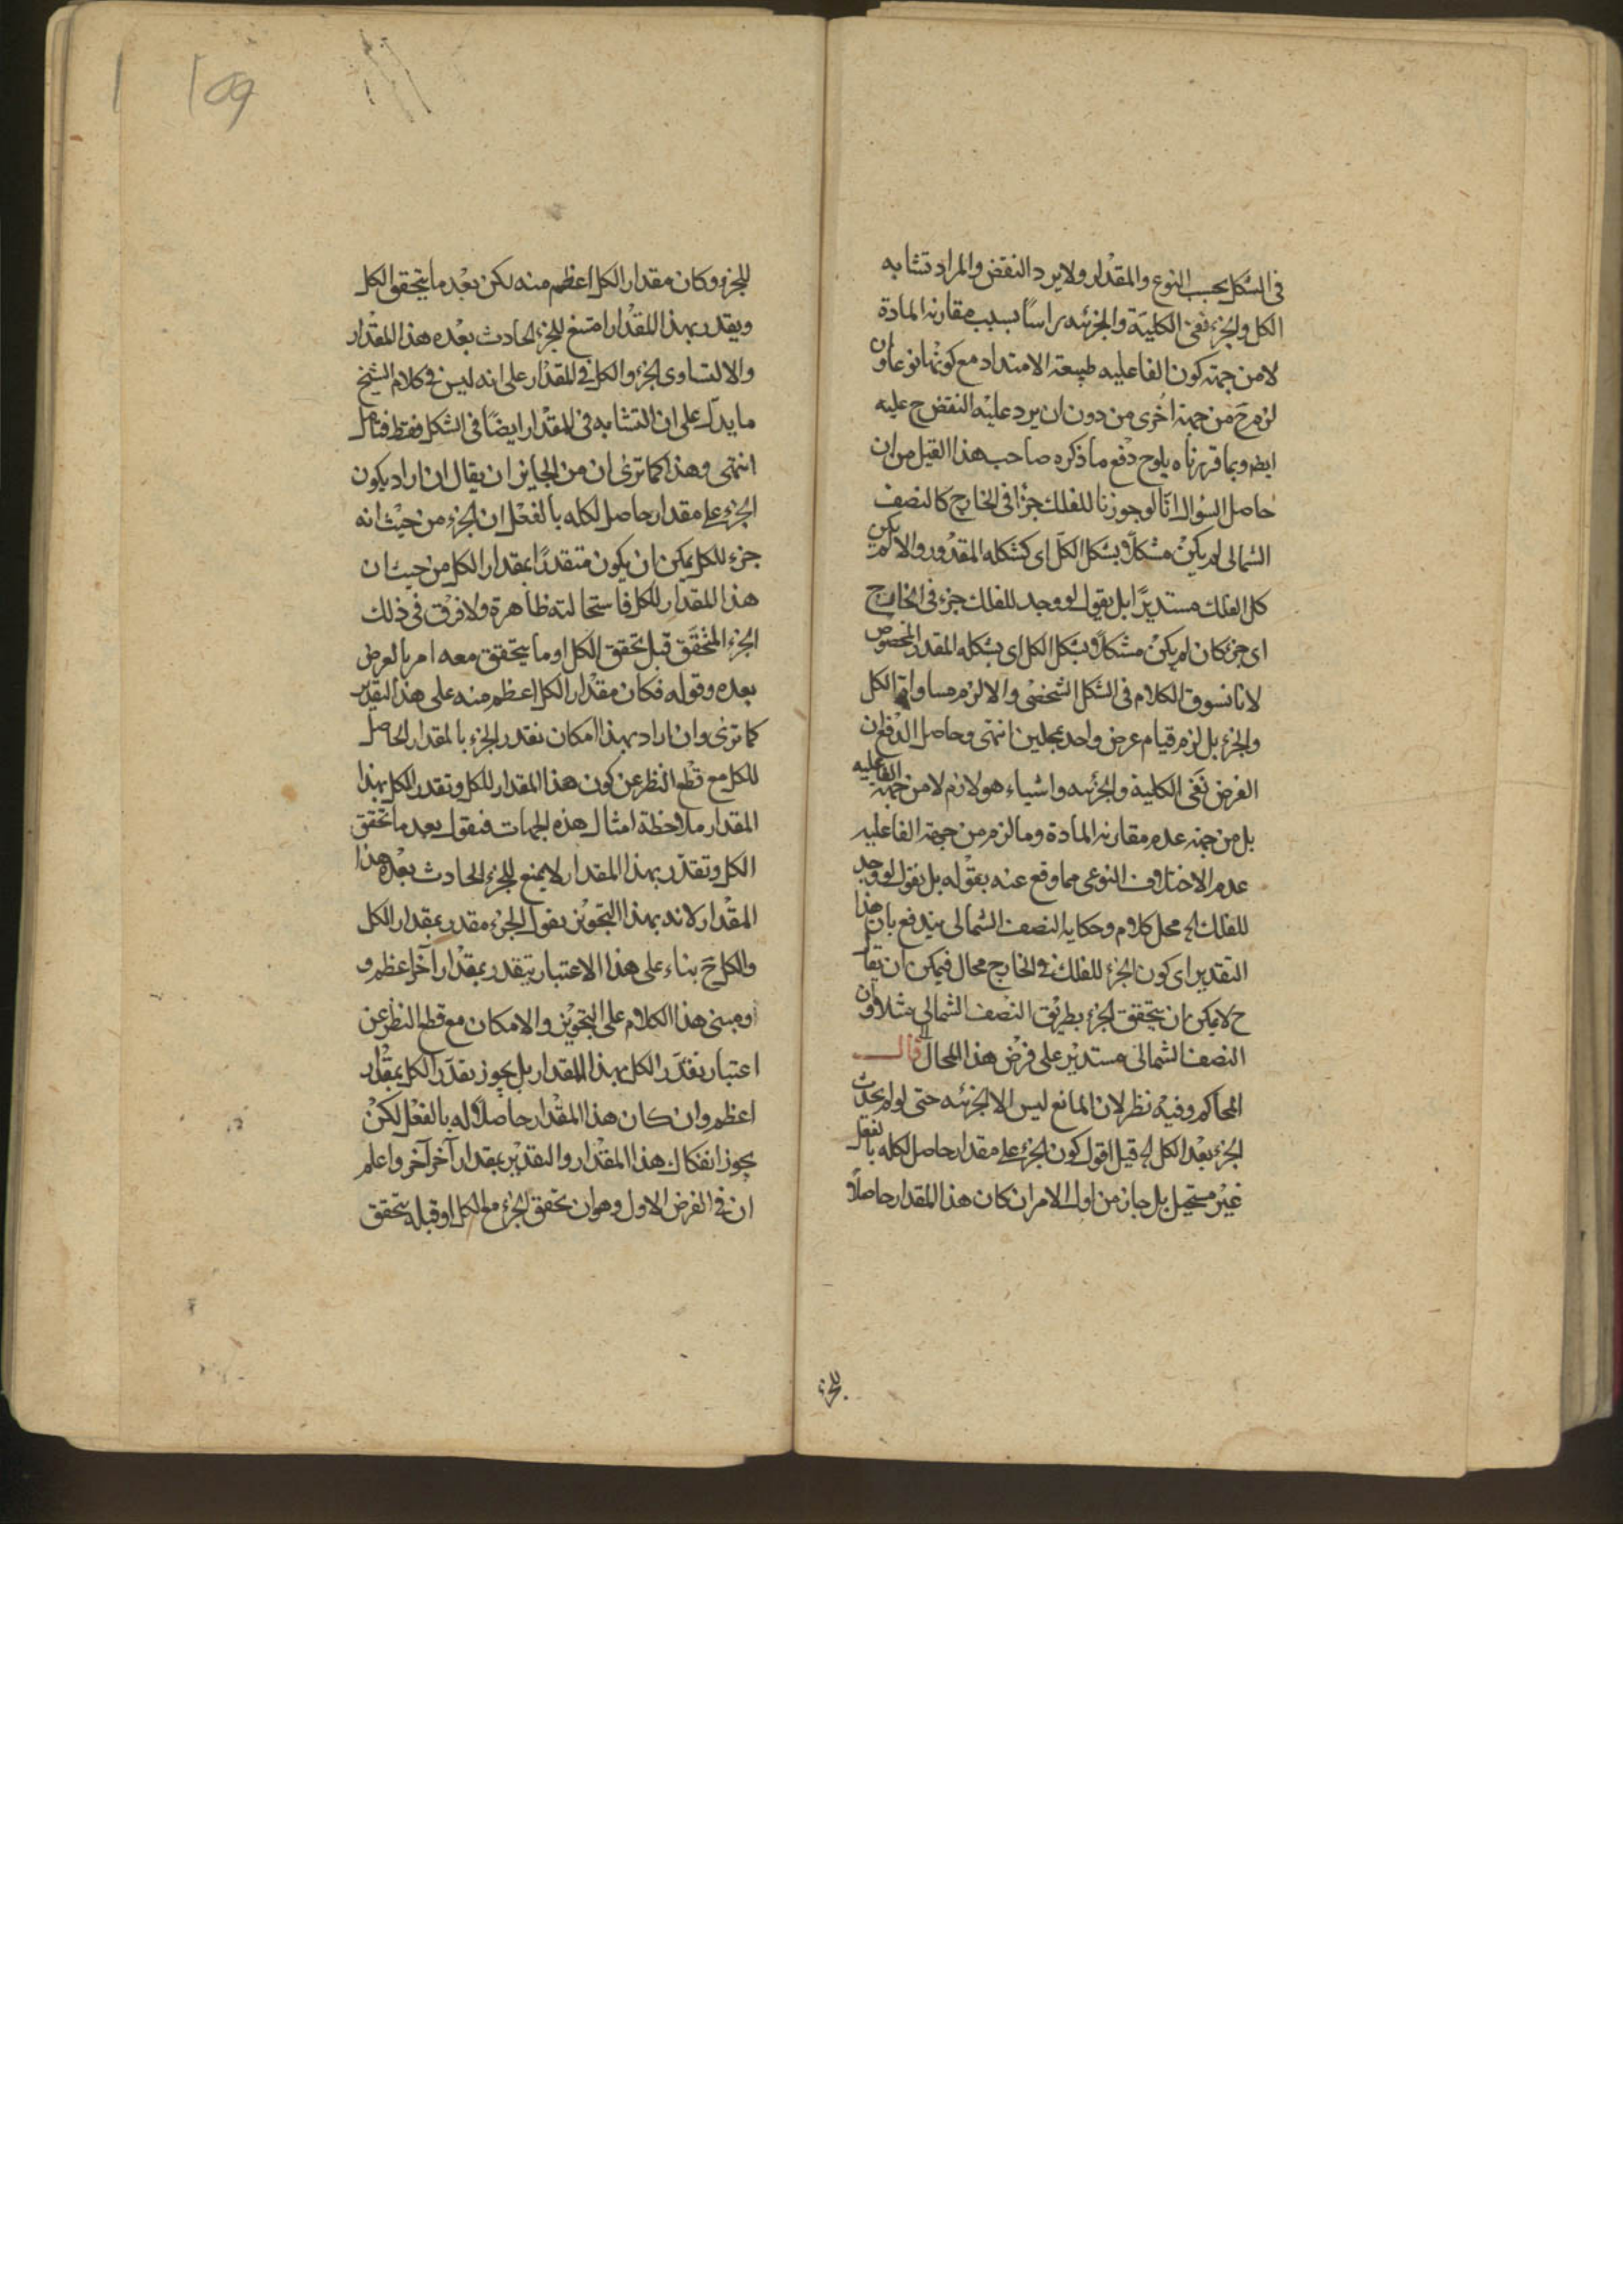 في الشكل بحسب النوع والمقدار ولا يرد النقض والمراد تشابه
الكل والجزء نفي الكلية والجزئيه راسًا بسبب مقارنه المادة
لا من جهة كون الفاعليه طبيعة الامتداد مع كونها نوعا وان
لزم ح من جهة اخرى من دون ان يرد عليه النقض ح عليه
ايضا وبما قررناه يلوح دفع ما ذكره صاحب هذا القيل من ان
حاصل السؤال انا لو جوزنا للفلك جزءًا في الخارج كالنصف
الشمالى لم يكن مشكلا بشكل الكل اى كشكله المقدور والا لم يكن
كل الفلك مستديرًا بل يقول لو وجد للفلك جزء في الخارج
اى جزء كان لم يكن مشكلا بشكل الكل اى بشكله المقدر المخصوص
لانا نسوق الكلام في الشكل الشخصى والا لزم مساواة الكل
والجزء بل لزم قيام عرض واحد بمحلين انتهى وحاصل الدفع ان
الغرض نفى الكلية والجزئيه واشياء هو لازم لا من جهة الفاعليه
بل من جهة عدم مقارنه المادة وما لزم من جهة الفاعليه
عدم الاختلاف النوعى مما وقع عنه بقوله بل نقول لو وجد
للفلك اه محل كلام وحكاية النصف الشمالى يندفع بان هذا
التقدير اى كون الجزء للفلك في الخارج محال فيمكن ان يقا
ح لا يمكن ان يتحقق الجزء بطريق النصف الشمالى مثلا وان
النصف الشمالى مستدير على فرض هذا المحال قال
المحاكم وفيه نظر لان المانع ليس الا الجزئيه حتى لو لم يحدث
الجزء بعد الكل اه قيل اقول كون الجزء على مقدار حاصل لكله بالفعل
غير مستحيل بل جاز من اول الامر ان كان هذا المقدار حاصلا
للجزء
للجزء وكان مقدار الكل اعظم منه لكن بعد ما يتحقق الكل
ويقدر بهذا المقدار امتنع للجزء الحادث بعده هذا المقدار
والا لتساوى الجزء والكل في المقدار على انه ليس في كلام الشيخ
ما يدل على ان التشابه في المقدار ايضًا في الشكل فقط فتامل
انتهى وهذا كما ترى ان من الجايز ان يقال ان اراد بكون
الجزء على مقدار حاصل لكله بالفعل ان الجزء من حيث انه
جزء للكل يمكن ان يكون متقدرًا بمقدار الكل من حيث ان
هذا المقدار للكل فاستحالته ظاهرة ولا فرق في ذلك
الجزء المتحقق قبل تحقق الكل او ما يتحقق معه ام بالعرض
بعده وقوله فكان مقدار الكل اعظم منه على هذا التقدير
كما ترى وان اراد بهذا امكان تقدر الجزء بالمقدار الحاصل
للكل مع قطع النظر عن كون هذا المقدار للكل وتقدر الكل بهذا
المقدار ملاحظة امثال هذه الجهات فنقول بعد ما تحقق
الكل وتقدر بهذا المقدار لا يمنع للجزء الحادث بعده هذا
المقدار لانه بهذا التجويز يقول الجزء مقدر بمقدار الكل
والكل ح بناء على هذا الاعتبار يتقدر بمقدار آخر اعظم و
ومبنى هذا الكلام على التجويز والامكان مع قطع النظر عن
اعتبار تقدر الكل بهذا المقدار بل يجوز تقدر الكل بمقدار
اعظم وان كان هذا المقدار حاصلا له بالفعل لكن
يجوز انفكاك هذا المقدار والتقدير بمقدار آخر آخر واعلم
ان في الفرض الاول وهو ان تحقق الجزء مع الكل او قبله يتحقق